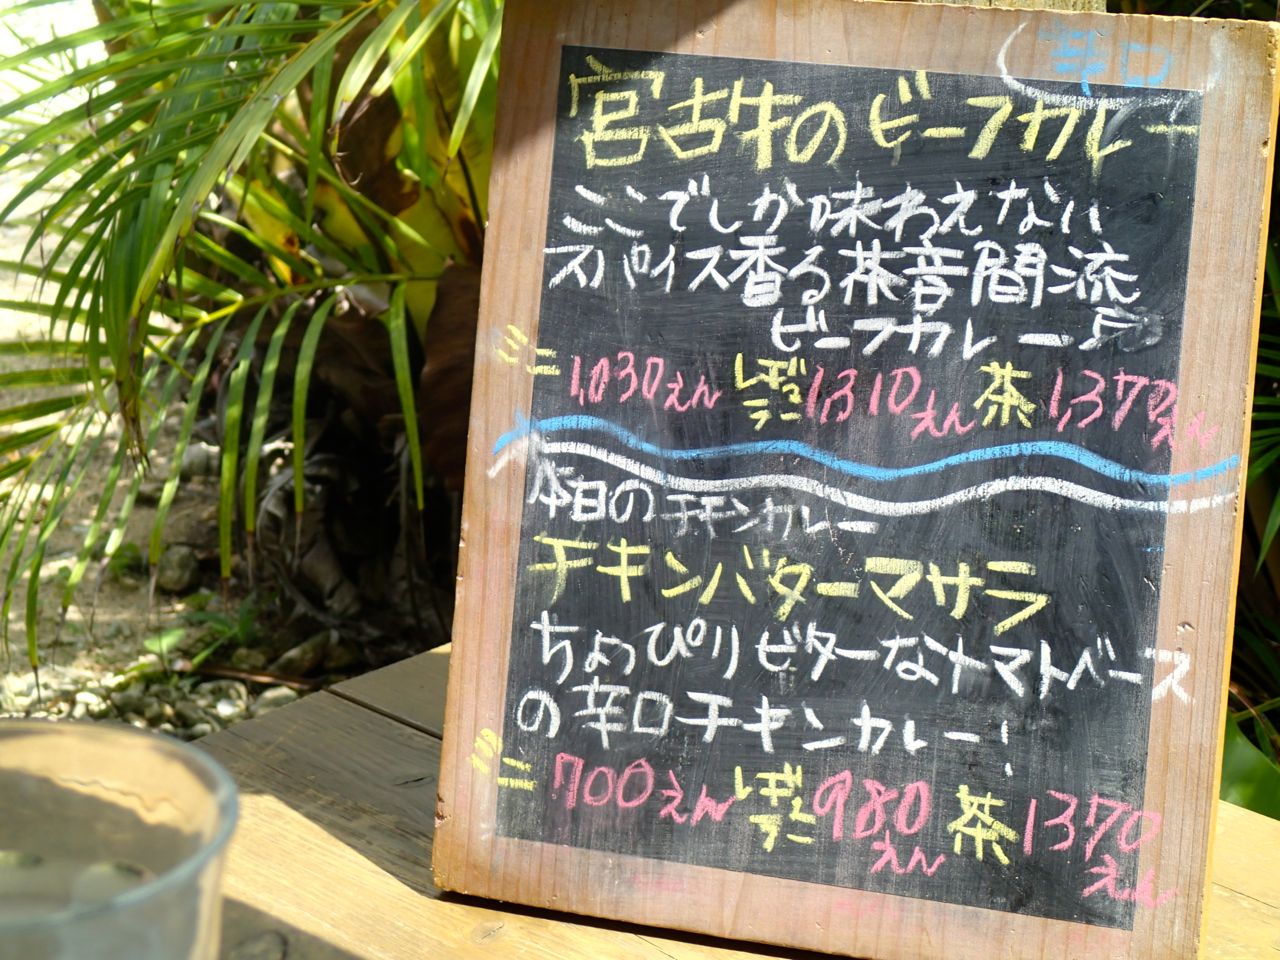 辛口
宮古牛のビーフカレー
ここでしか味わえない
スパイス香る茶音間流
ビーフカレー
ミニ 1,030えん レギュラー 1,310えん 茶 1,370えん
本日のチキンカレー
チキンバターマサラ
ちょっぴりビターなトマトベース
の辛口チキンカレー!
ミニ 700えん レギュラー 980えん 茶 1370えん